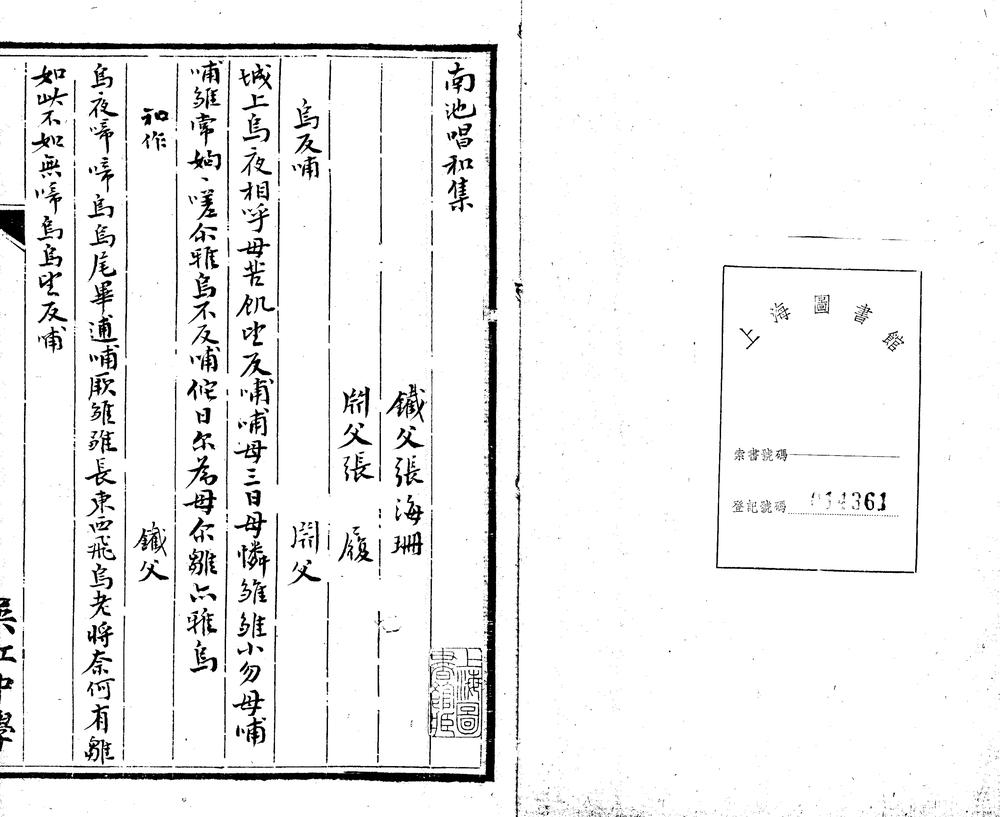 上海圖書館
索書號碼
登記號碼 014361
南池唱和集
上海圖書館藏
鐵父張海珊
開父張 履
烏反哺 開父
城上烏夜相呼母苦飢望反哺哺母三日母憐雛雛小勿母哺
哺雛常婀々嗟尒雅烏不反哺侘日尔為母尔雛亦雅烏
和作 鐵父
烏夜啼啼烏烏尾畢逋哺厥雛雛長東西飛烏老將奈何有雛
如此不如無啼烏烏望反哺
吳江中學